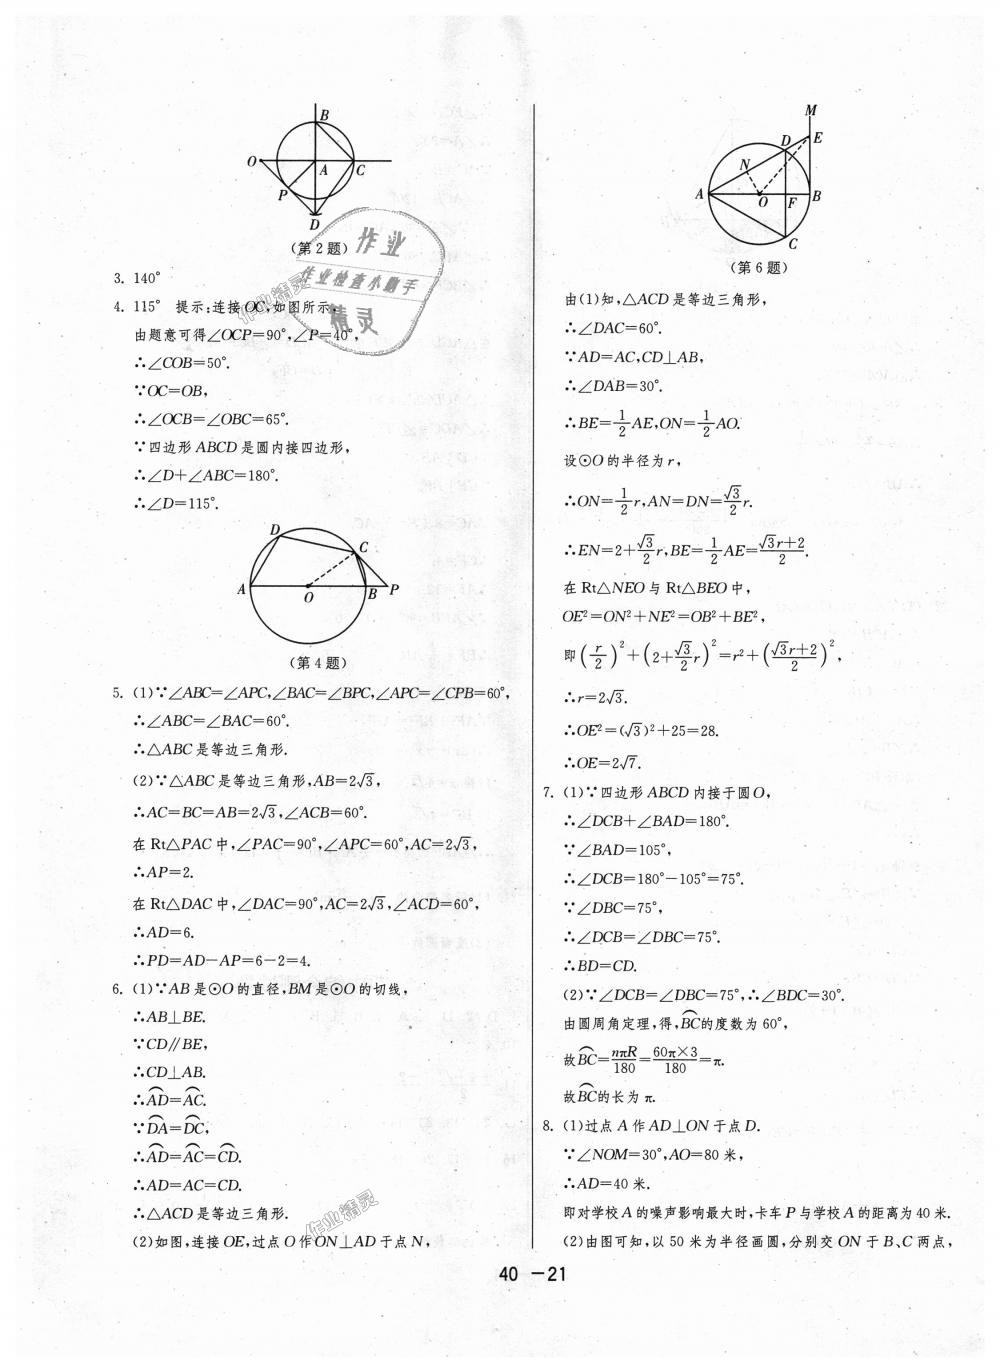 B
O
A
C
P
D
(第2题)
3. 140°
4. 115° 提示:连接OC,如图所示,
由题意可得∠OCP=90°,∠P=40°,
∴∠COB=50°.
∵OC=OB,
∴∠OCB=∠OBC=65°.
∵四边形ABCD是圆内接四边形,
∴∠D+∠ABC=180°.
∴∠D=115°.
D
C
A
O
B
P
(第4题)
5. (1)∵∠ABC=∠APC,∠BAC=∠BPC,∠APC=∠CPB=60°,
∴∠ABC=∠BAC=60°.
∴△ABC是等边三角形.
(2)∵△ABC是等边三角形,AB=2√3,
∴AC=BC=AB=2√3,∠ACB=60°.
在Rt△PAC中,∠PAC=90°,∠APC=60°,AC=2√3,
∴AP=2.
在Rt△DAC中,∠DAC=90°,AC=2√3,∠ACD=60°,
∴AD=6.
∴PD=AD-AP=6-2=4.
6. (1)∵AB是⊙O的直径,BM是⊙O的切线,
∴AB⊥BE.
∵CD∥BE,
∴CD⊥AB.
∴A͡D=A͡C.
∵D͡A=D͡C,
∴A͡D=A͡C=C͡D.
∴AD=AC=CD.
∴△ACD是等边三角形.
(2)如图,连接OE,过点O作ON⊥AD于点N,
M
D
E
N
A
O
F
B
C
(第6题)
由(1)知,△ACD是等边三角形,
∴∠DAC=60°.
∵AD=AC,CD⊥AB,
∴∠DAB=30°.
∴BE=1/2AE,ON=1/2AO.
设⊙O的半径为r,
∴ON=1/2r,AN=DN=√3/2r.
∴EN=2+√3/2r,BE=1/2AE=(√3r+2)/2.
在Rt△NEO与Rt△BEO中,
OE²=ON²+NE²=OB²+BE²,
即(r/2)²+(2+√3/2r)²=r²+((√3r+2)/2)²,
∴r=2√3.
∴OE²=(√3)²+25=28.
∴OE=2√7.
7. (1)∵四边形ABCD内接于圆O,
∴∠DCB+∠BAD=180°.
∵∠BAD=105°,
∴∠DCB=180°-105°=75°.
∵∠DBC=75°,
∴∠DCB=∠DBC=75°.
∴BD=CD.
(2)∵∠DCB=∠DBC=75°,∴∠BDC=30°.
由圆周角定理,得,B͡C的度数为60°,
故B͡C=nπR/180=60π×3/180=π.
故B͡C的长为π.
8. (1)过点A作AD⊥ON于点D.
∵∠NOM=30°,AO=80米,
∴AD=40米.
即对学校A的噪声影响最大时,卡车P与学校A的距离为40米.
(2)由图可知,以50米为半径画圆,分别交ON于B、C两点,
40 -21
作业
作业检查小助手
精灵
作业精灵
作业精灵